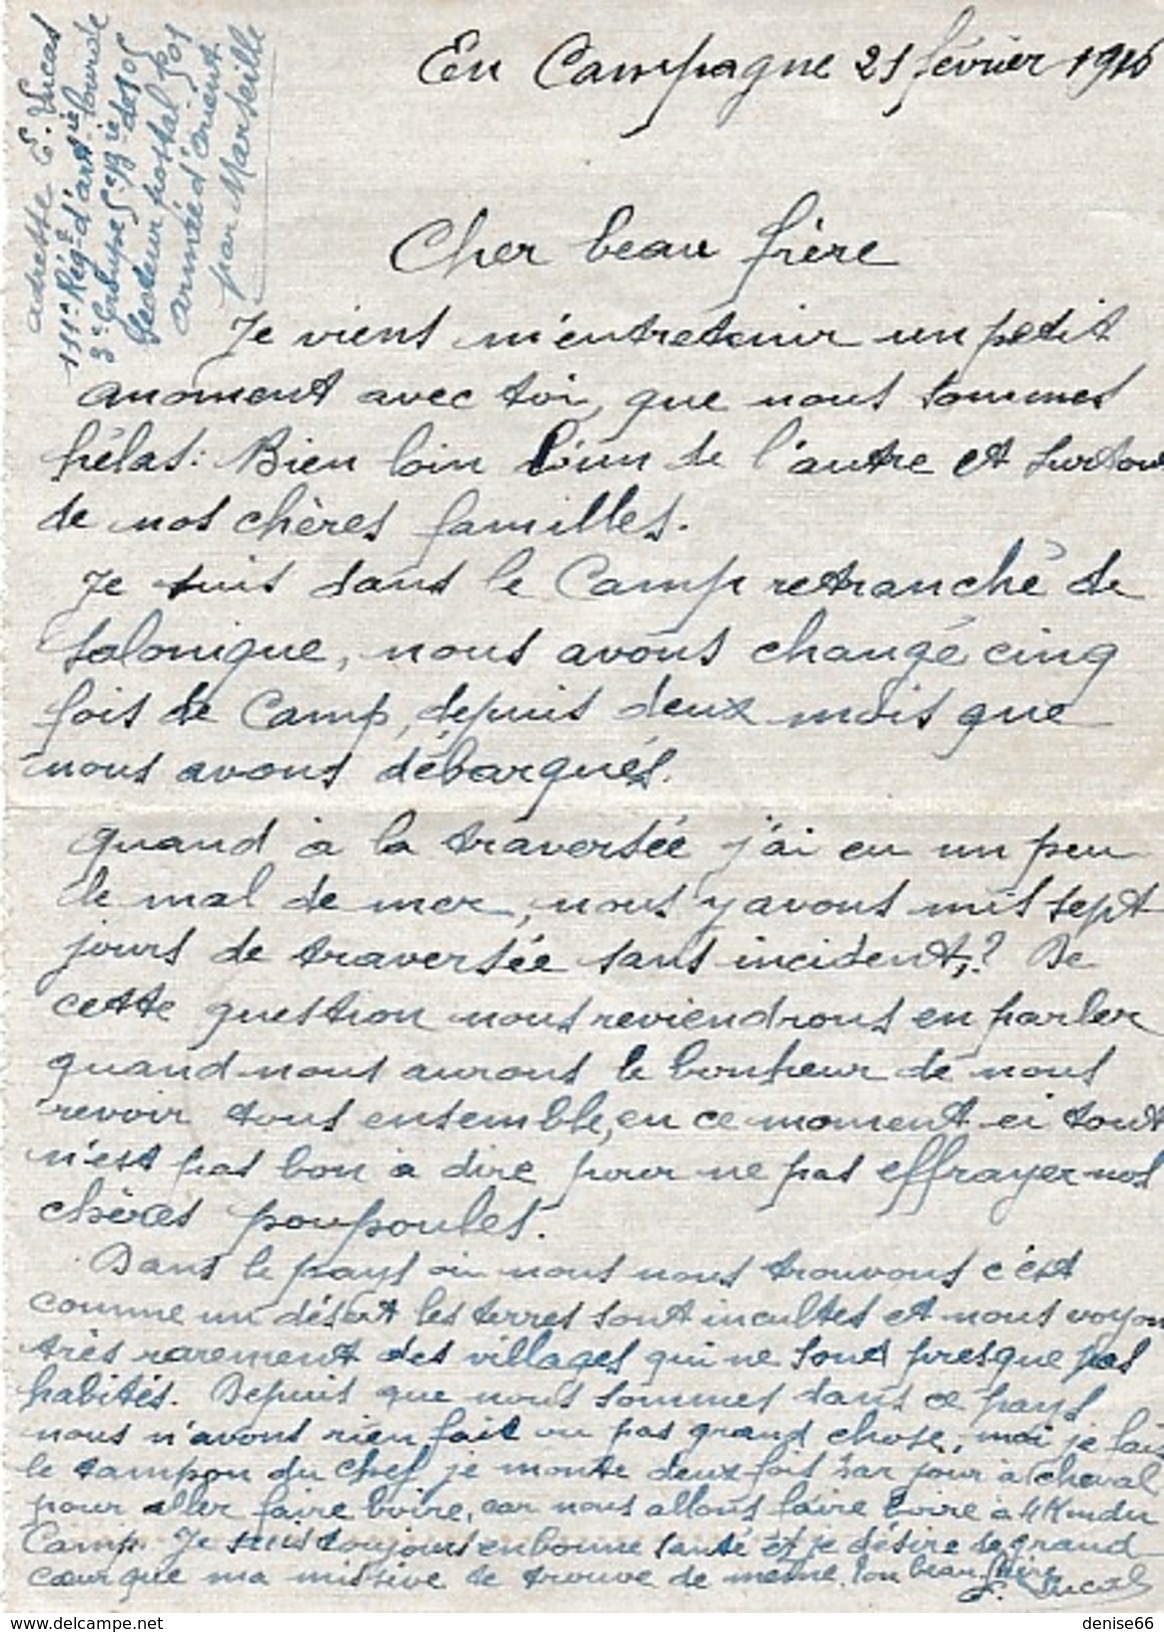 adresse E. Lucas
111e Rég. d'artie lourde
3e Groupe 5e Bie de 105
Secteur postal 501
armée d'orient
par Marseille
En Campagne 21 février 1916
Cher beau frère
Je viens m'entretenir un petit
moment avec toi, que nous sommes
hélas: Bien loin l'un de l'autre et surtout
de nos chères familles.
Je suis dans le Camp retranché de
Salonique, nous avons changé cinq
fois de Camp, depuis deux mois que
nous avons débarqués.
quand à la traversée j'ai eu un peu
de mal de mer, nous y avons mis sept
jours de traversée sans incident,? De
cette question nous reviendrons en parler
quand nous aurons le bonheur de nous
revoir tous ensemble, en ce moment ci tout
n'est pas bon à dire pour ne pas effrayer nos
chères poupoules.
Dans le pays où nous nous trouvons c'est
comme un désert les terres sont incultes et nous voyons
très rarement des villages qui ne sond presque pas
habités. Depuis que nous sommes dans ce pays
nous n'avons rien fait ou pas grand chose, moi je fais
le tampon du chef je monte deux fois par jour à cheval
pour aller faire boire, car nous allons faire boire à 4 Km du
Camp. Je suis toujours en bonne santé et je désire de grand
cœur que ma missive te trouve de même. Ton beau frère
E. Lucas
denise66